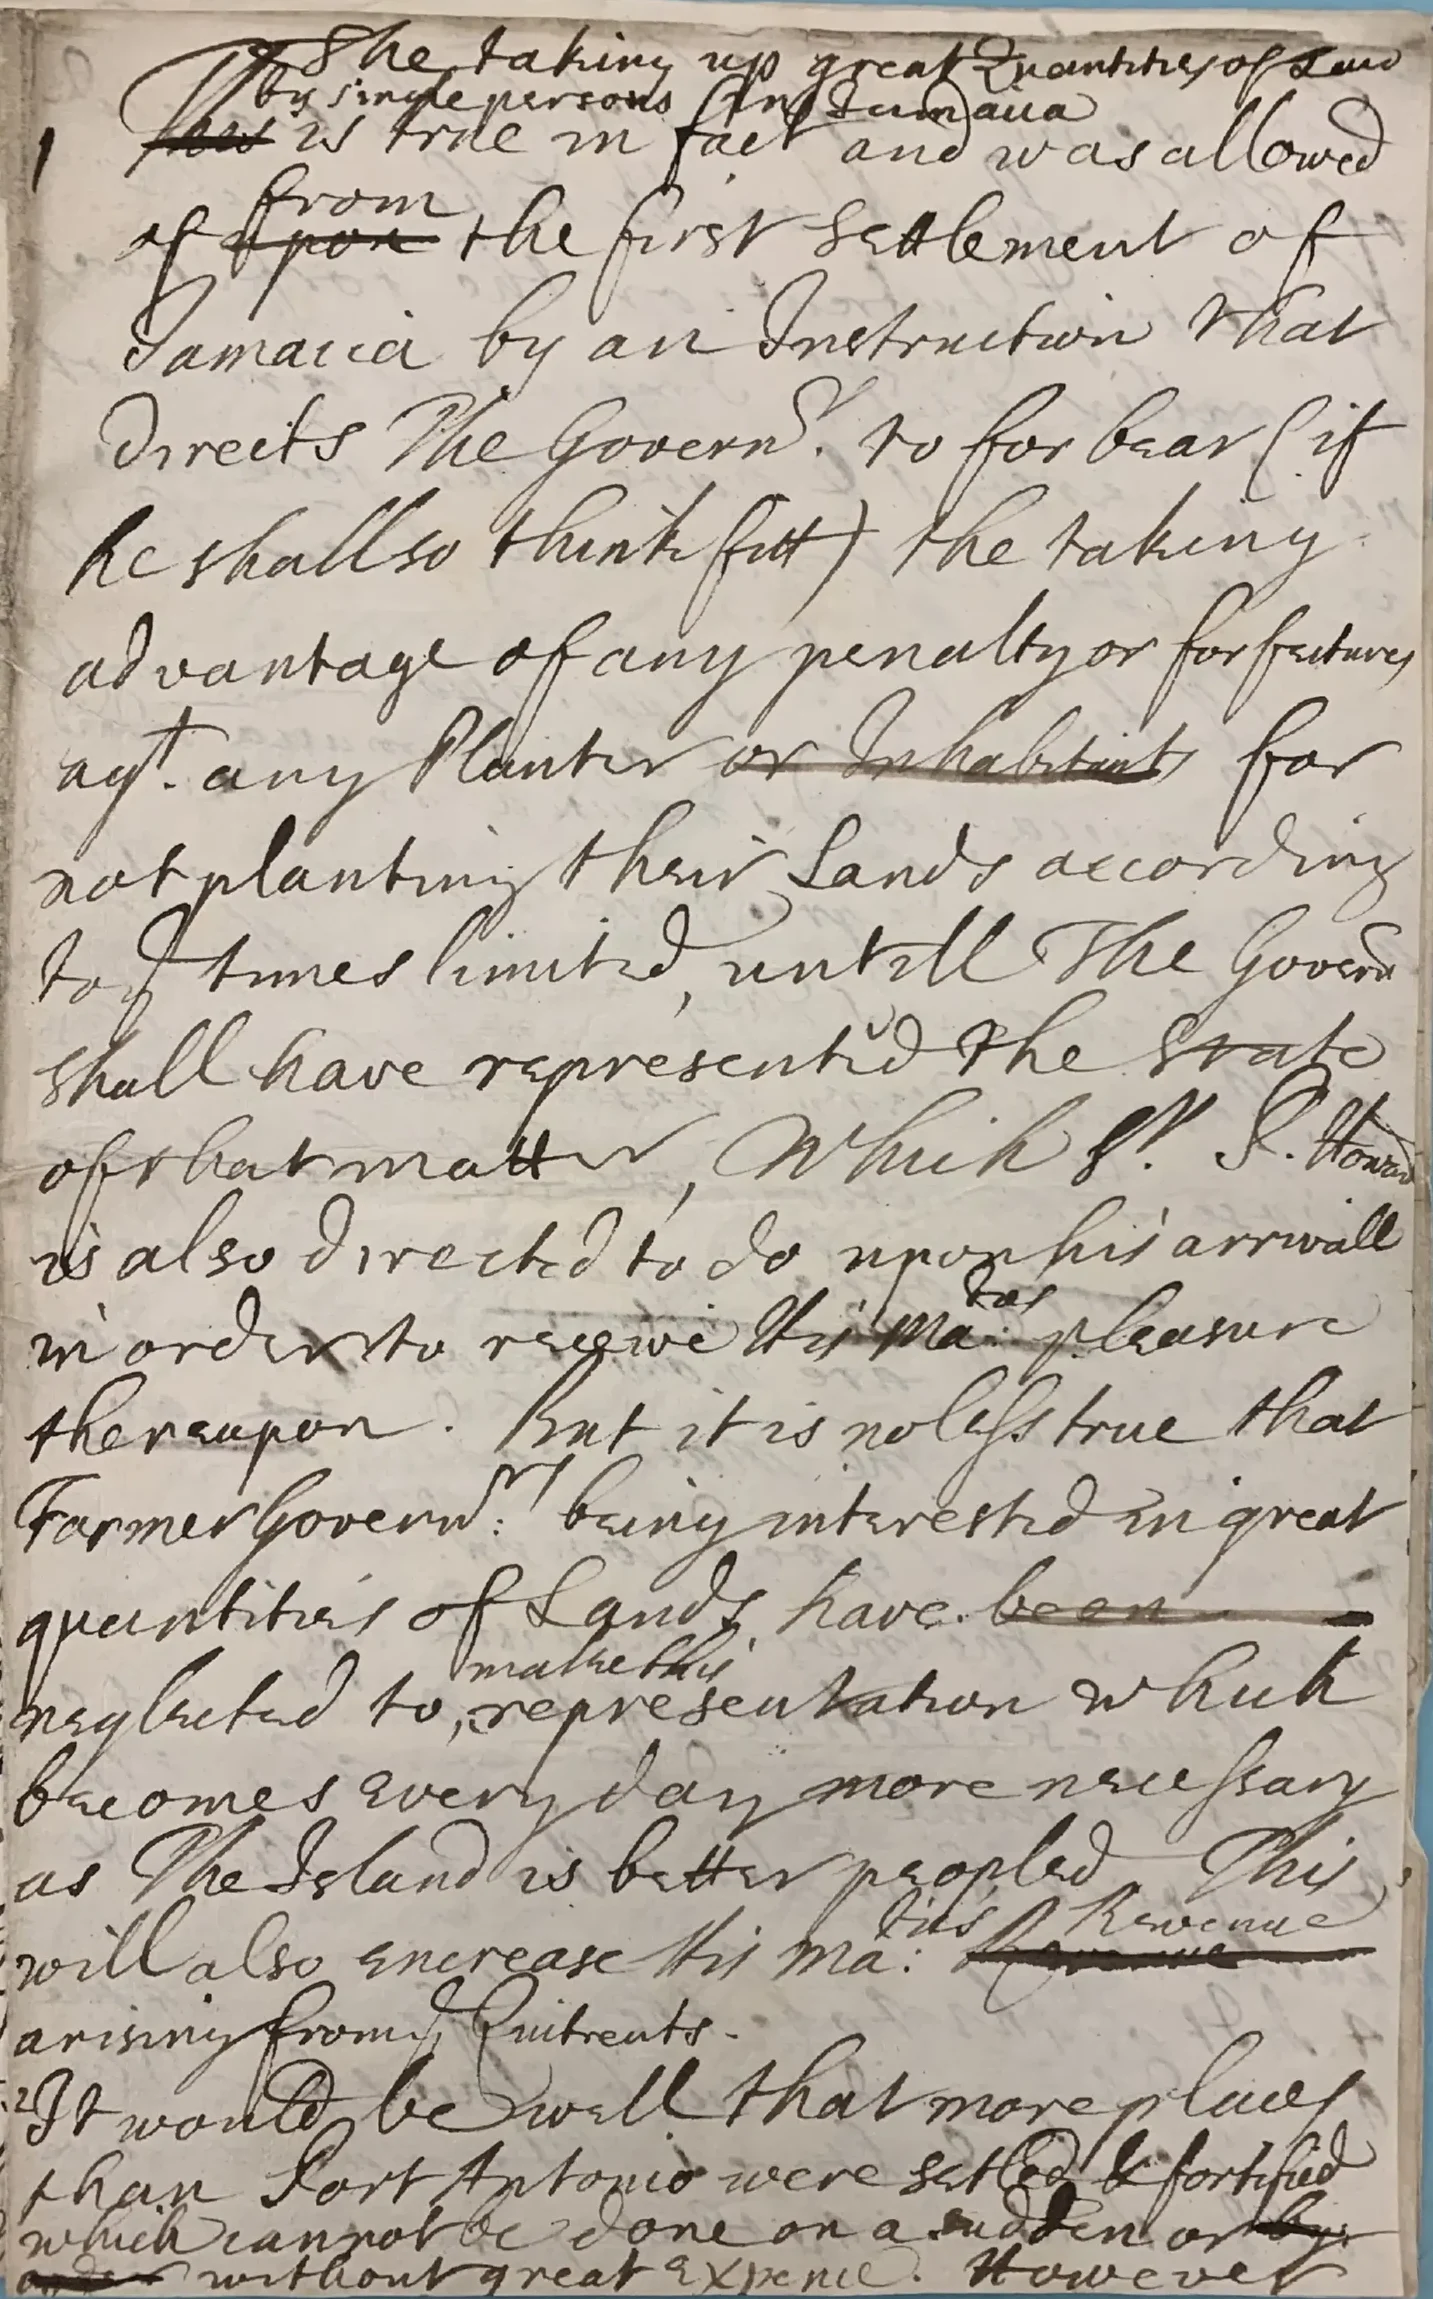 The taking up great Quantities of Land
by single persons in Jamaica
1 This is true in fact and was allowed
from
of upon the first Settlement of
Jamaica by an Instruction that
directs The Govern.r to forbear (if
he shall so think fitt) the taking
advantage of any penalty or forfeitures
agt. any Planter or Inhabitants for
not planting their Lands according
to ye times limited, untill The Governr
shall have represented the State
of that matter, Which Sr. P. Howard
is also directed to do upon his arrivall
in order to receive His Ma:ties pleasure
thereupon. But it is no less true that
Former Govern:rs being interested in great
quantities of Lands have been
make this
neglected to, representation which
becomes every day more necessary
as The Island is better peopled This
will also encrease His Ma:ties Revenue Revenue
arising from ye Quitrents.
2 It would be well that more places
than Port Antonio were setled & fortified
which cannot be done on a sudden or by
order without great Expence. However